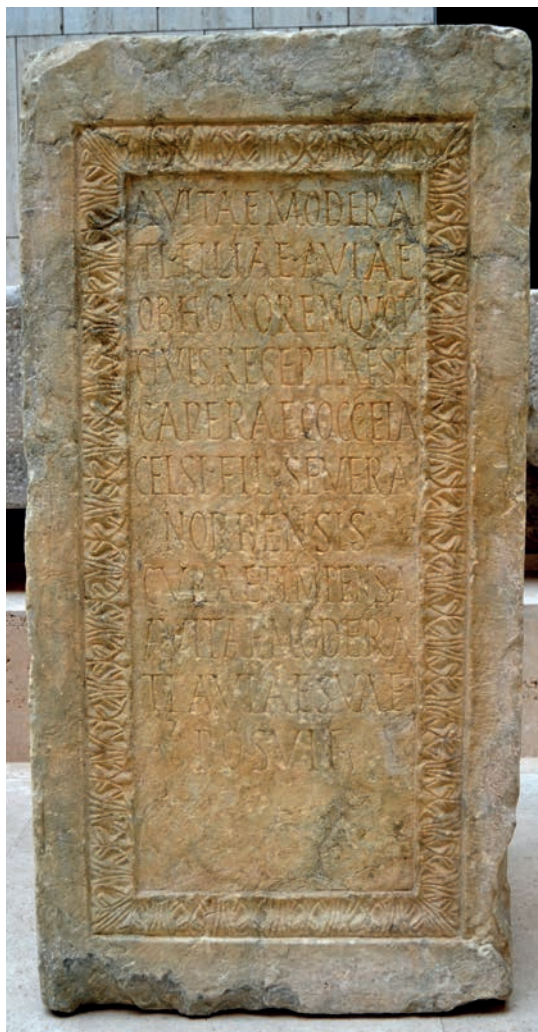 AVITAE MODERA
TI FILIAE AVIAE
OB HONOREM QVOT
CIVIS RECEPTA EST
CAPERAE COCCELA
CELSI FIL SEVERA
NORBENSIS
CVRA ET IMPENSA
AVITAE MODERA
TI AVIAE SVAE
POSVIT